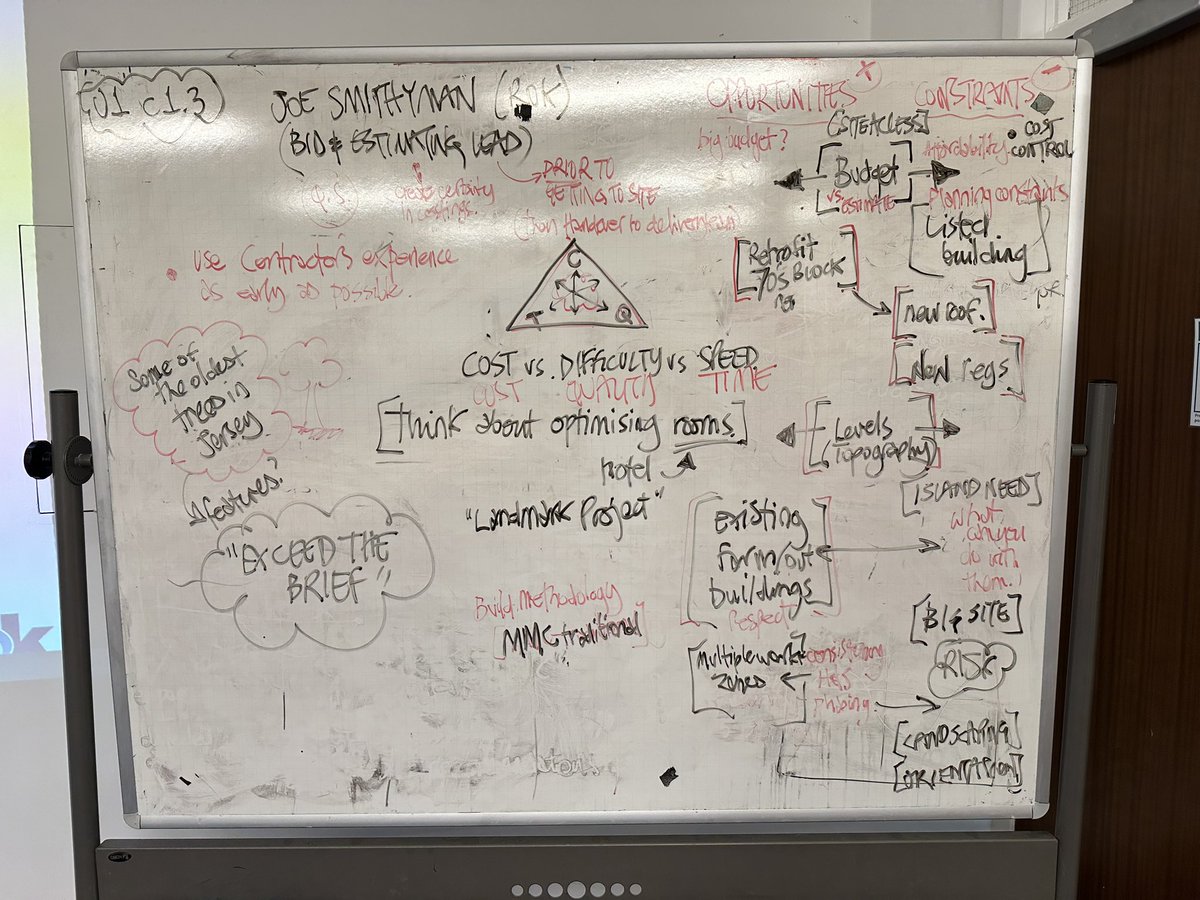 U1 c1.3
JOE SMITHYMAN (ROK)
(BID & ESTIMATING LEAD)
Q.S.
create certainty
in costings.
PRIOR TO
GETTING TO SITE
(then Handover to delivery team)
• use Contractor's experience
as early as possible.
C
T
Q
COST vs. DIFFICULTY vs SPEED
COST QUALITY TIME
[think about optimising rooms.]
hotel
"Landmark Project"
Some of
the oldest
trees in
Jersey
features?
"EXCEED THE
BRIEF"
Build methodology
[MMC-traditional]
OPPORTUNITES +
big budget?
CONSTRAINTS -
[SITE ACCESS]
[Budget
vs. ESTIMATE]
Affordability
• COST
CONTROL
Planning constraints
[Listed
building]
[Retrofit
70's BLOCK
[new roof.]
[New regs]
[Levels
(Topography)]
[ISLAND NEED]
what
can you
do with
them.
[existing
form/out
buildings]
respect
[BIG SITE]
RISK
[Multiple work
zones]
considering
H&S
phasing
[LANDSCAPING]
[ORIENTATION]
ok